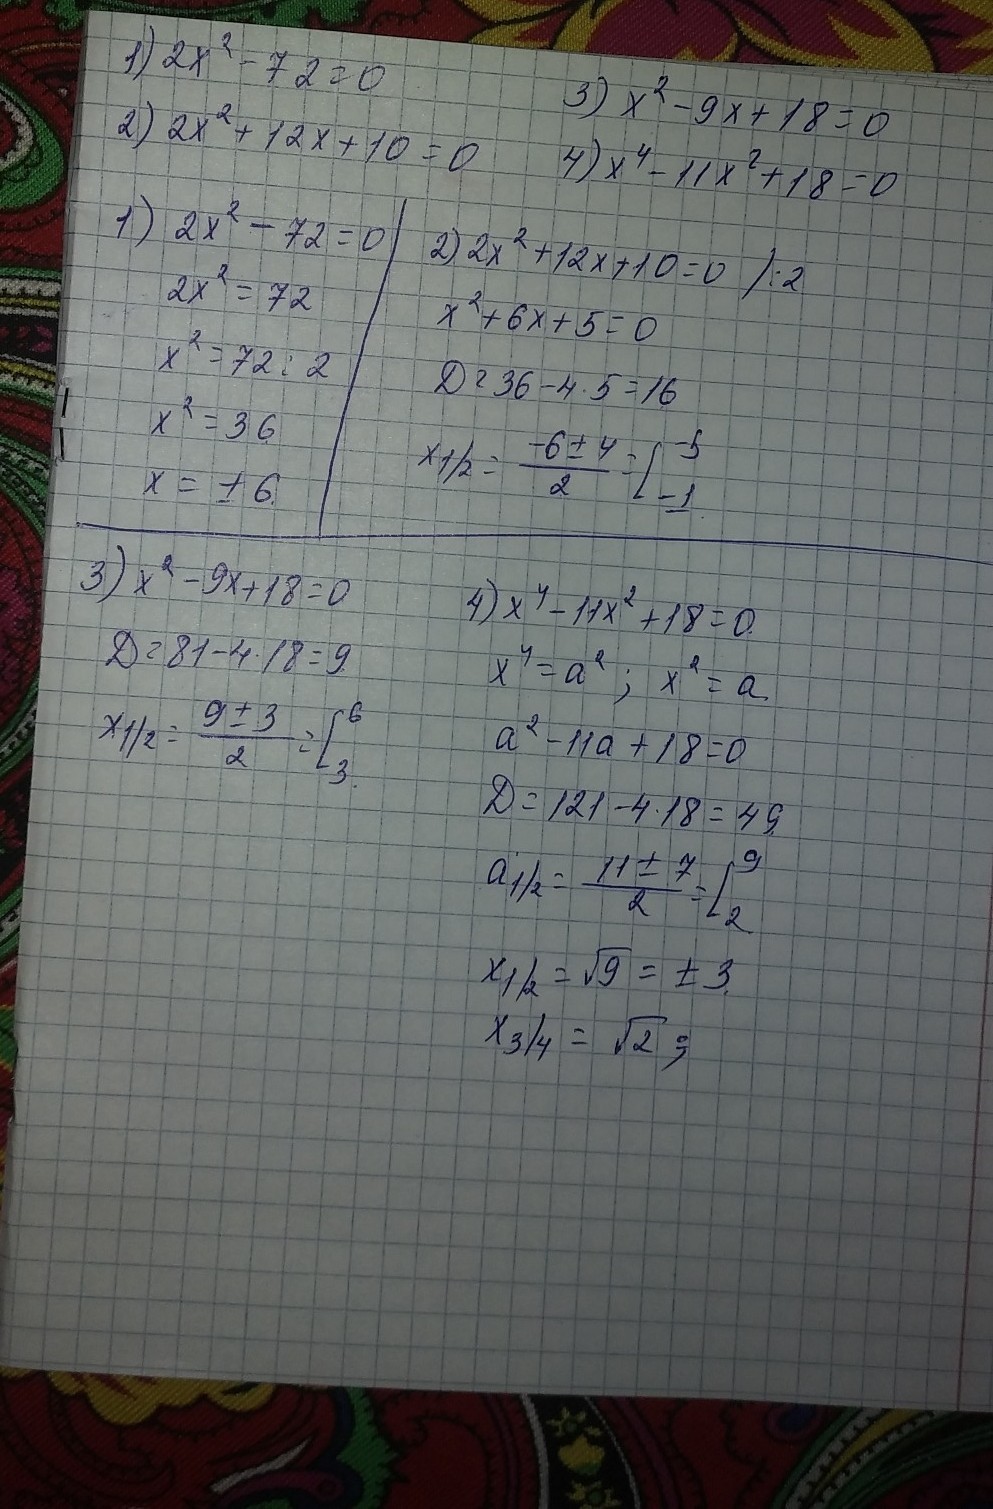 1) 2x² - 72 = 0
2) 2x² + 12x + 10 = 0
3) x² - 9x + 18 = 0
4) x⁴ - 11x² + 18 = 0
1) 2x² - 72 = 0
2x² = 72
x² = 72 : 2
x² = 36
x = ± 6
2) 2x² + 12x + 10 = 0 ) : 2
x² + 6x + 5 = 0
D = 36 - 4 · 5 = 16
x1/2 = (-6 ± 4)/2 = [ -5 -1
3) x² - 9x + 18 = 0
D = 81 - 4 · 18 = 9
x1/2 = (9 ± 3)/2 = [ 6 3
4) x⁴ - 11x² + 18 = 0
x⁴ = a² ; x² = a
a² - 11a + 18 = 0
D = 121 - 4 · 18 = 49
a1/2 = (11 ± 7)/2 = [ 9 2
x1/2 = √9 = ± 3
x3/4 = √2 ;